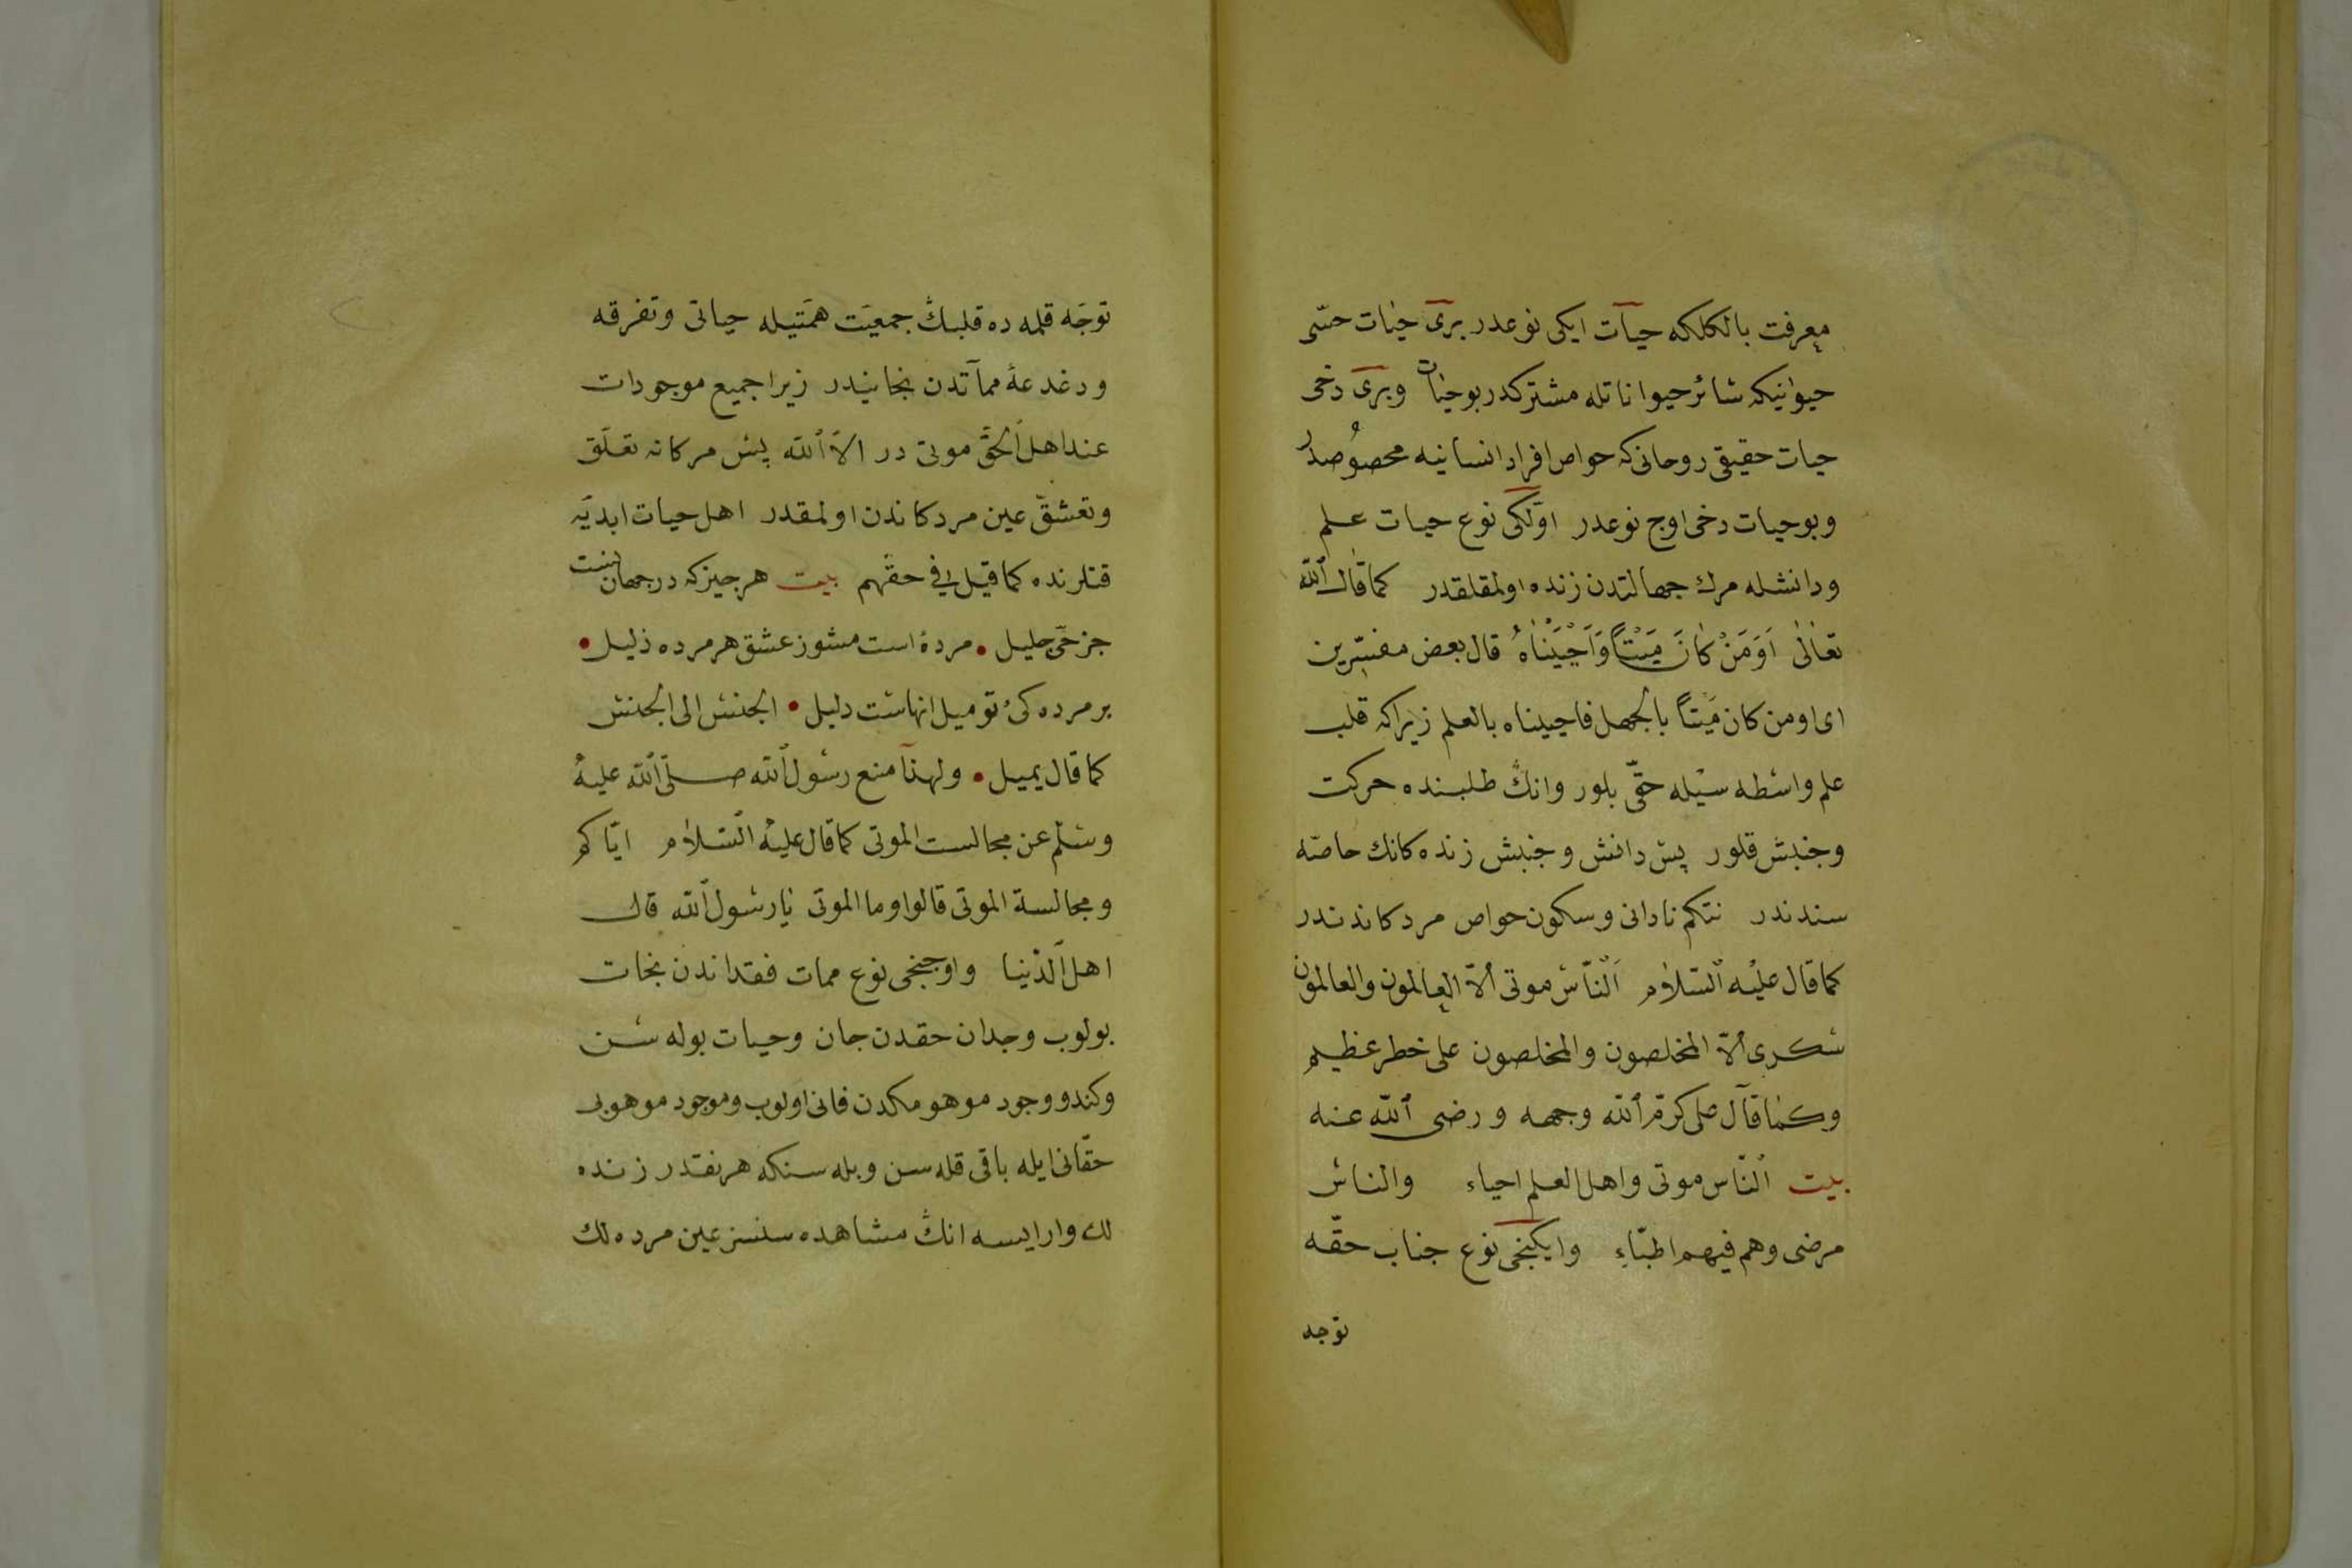 معرفت بالكلكه حیات ایكی نوعدر بری حیات حسّی
حیوانیكه سائر حیواناتله مشتركدر بو حیات و بری دخی
حیات حقیقی روحانی كه حواص افراد انسانیه محصوصدر
و بو حیات دخی اوج نوعدر اوّلكی نوع حیات علم
و دانشله مرك جهالتدن زنده اولمقلقدر كما قال الله
تعالی اَوَمَنْ كَانَ مَيْتاً وَاَحْيَيْنَاهُ قال بعض مفسّرین
ای او من كان مَیْتاً بالجهل فاحییناه بالعلم زیراكه قلب
علم واسطه سیله حقّی بلور وانڭ طلبنده حركت
وجنبش قلور پس دانش وجنبش زنده كانك خاصّه
سندندر نتكم نادانی وسكون حواص مردكاندندر
كما قال علیه السّلام اَلنّاس موتی الّا العالمون والعالمون
سكری الّا المخلصون والمخلصون علی خطر عظیم
وكما قال علی كرّم الله وجهه و رضی الله عنه
بیت النّاس موتی واهل العلم احیاء والناس
مرضی وهم فیهم اطبّاء وایكنجی نوع جناب حقّه
توجه
توجّه قلمه ده قلبڭ جمعیّت همّتیله حیاتی وتفرقه
ودغدعۀ مماتدن نجاتیدر زیرا جمیع موجودات
عند اهل الحقّ موتی در الّا الله پس مركانه تعلّق
وتعشّق عین مردكاندن اولمقدر اهل حیات ابدیّه
قتلرنده كما قیل فی حقهم بیت هر چیز كه در جهان نیست
جز حیّ جلیل • مردۀ است مشوز عشق هر مرده ذلیل •
بر مرده كیٔ تو میل انهاست دلیل • الجنس الی الجنس
كما قال یمیل • ولهذا منع رسول الله صلّی الله علیه
وسلّم عن مجالست الموتی كما قال علیه السّلام ایّاكم
ومجالسة الموتی قالوا وما الموتی یا رسول الله قال
اهل الدّنیا واوجنجی نوع ممات فقداندن نجات
بولوب وجدان حقدن جان وحیات بوله سن
وكندو وجود موهومكدن فانی اولوب وموجود موهوبی
حقّانی ایله باقی قله سن وبله سنكه هر نقدر زنده
لك وار ایسه انڭ مشاهده سنسز عین مرده لك